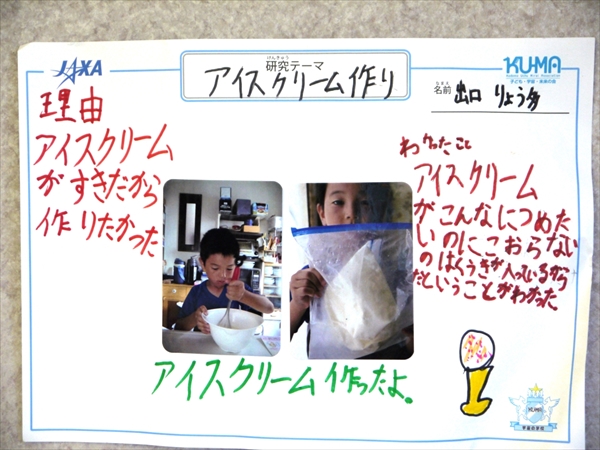 JAXA
けんきゅう
研究テーマ
アイスクリーム作り
KUMA
子ども・宇宙・未来の会
なまえ
名前 出口 りょう多
理由
アイスクリーム
がすきだから
作りたかった
わかったこと
アイスクリーム
がこんなにつめた
いのにこおらない
のはくうきが入っているから
だということがわかった
アイスクリーム作ったよ。
KUMA
宇宙の学校